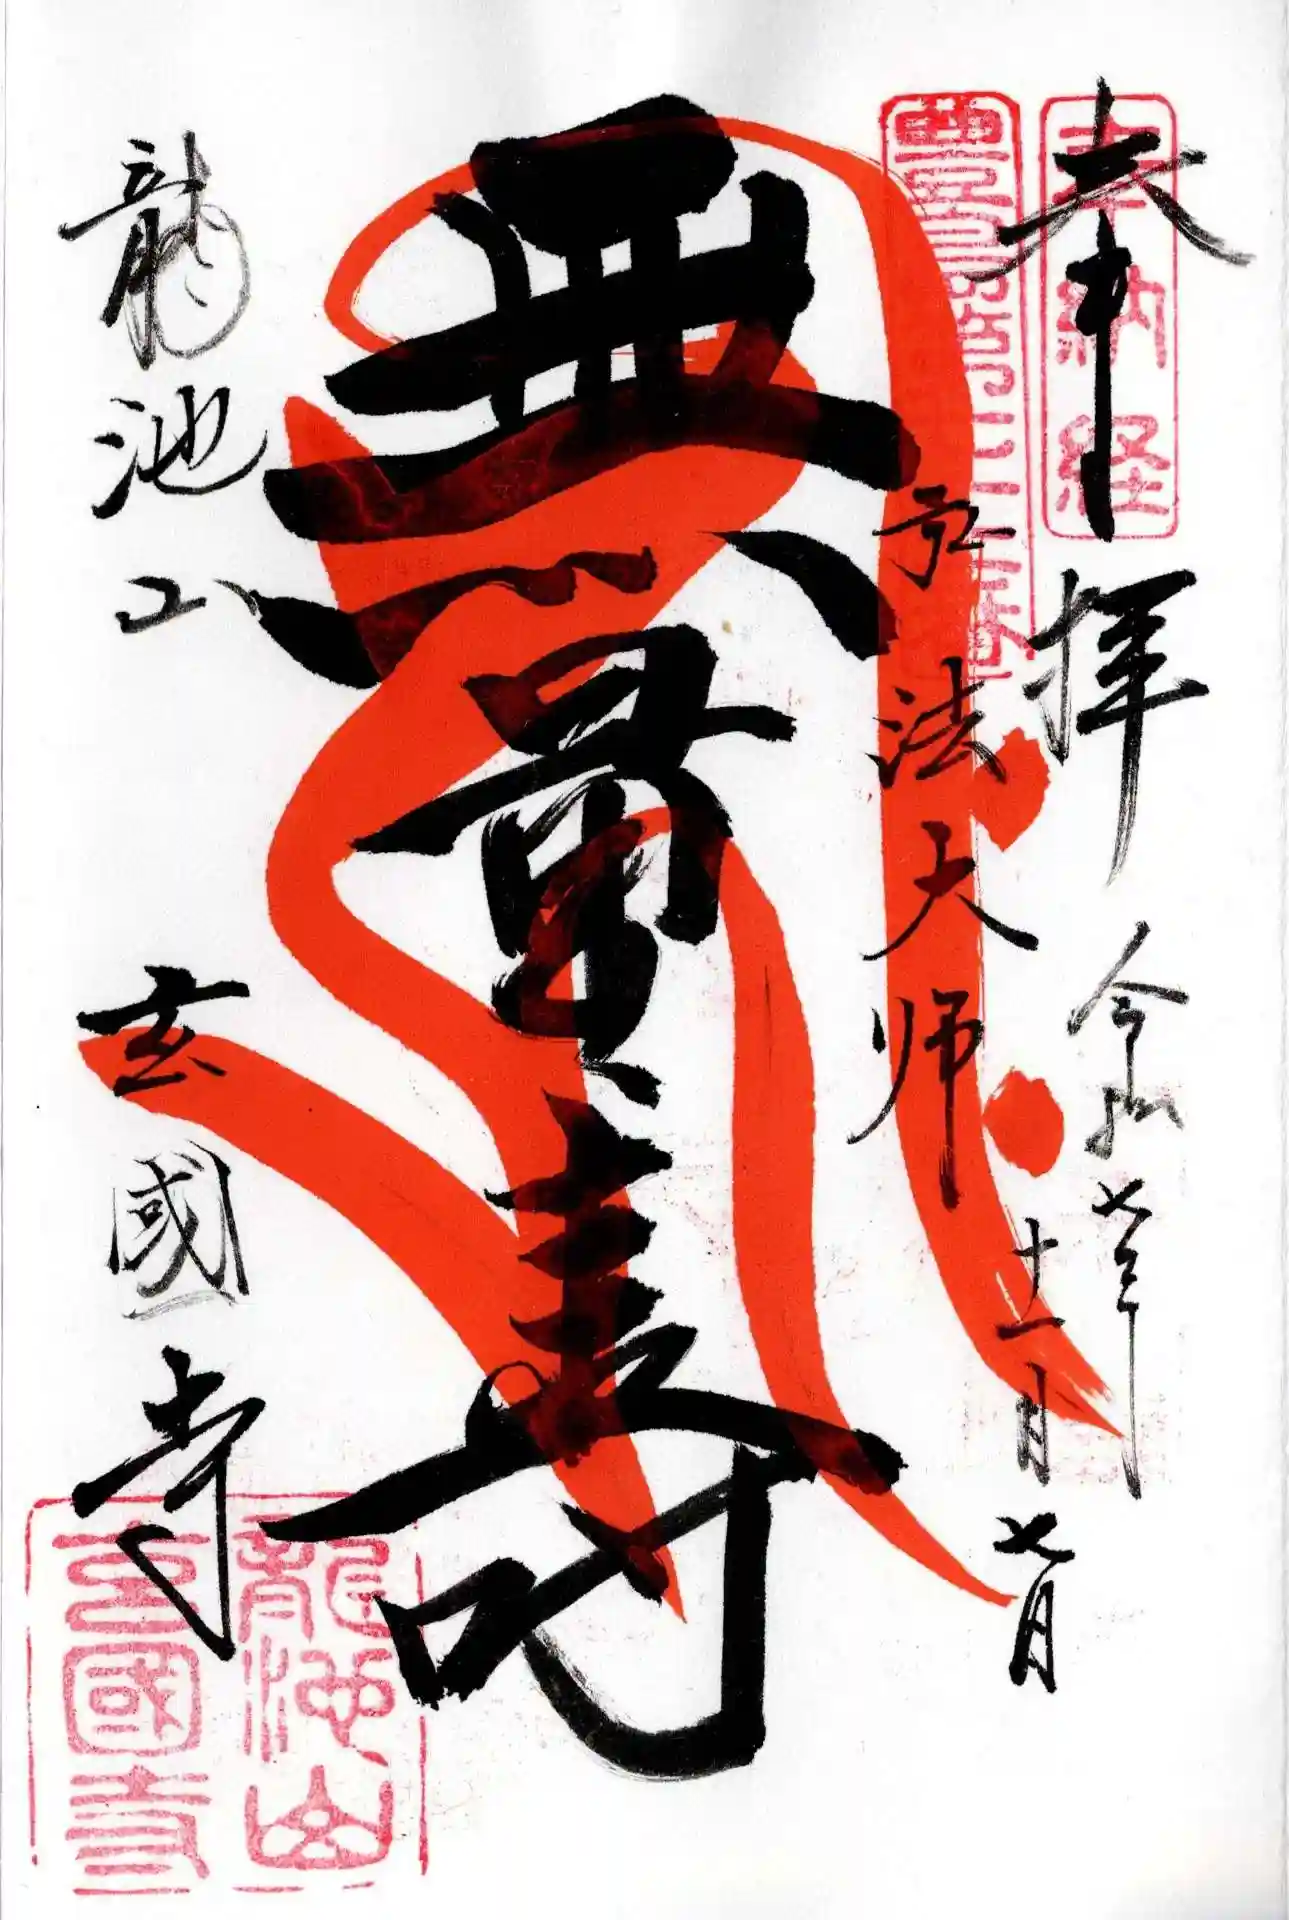 奉拝
令和七年
十一月七日
奉納経
弘法大師
無量寿
龍池山
玄國寺
龍池山
玄國寺